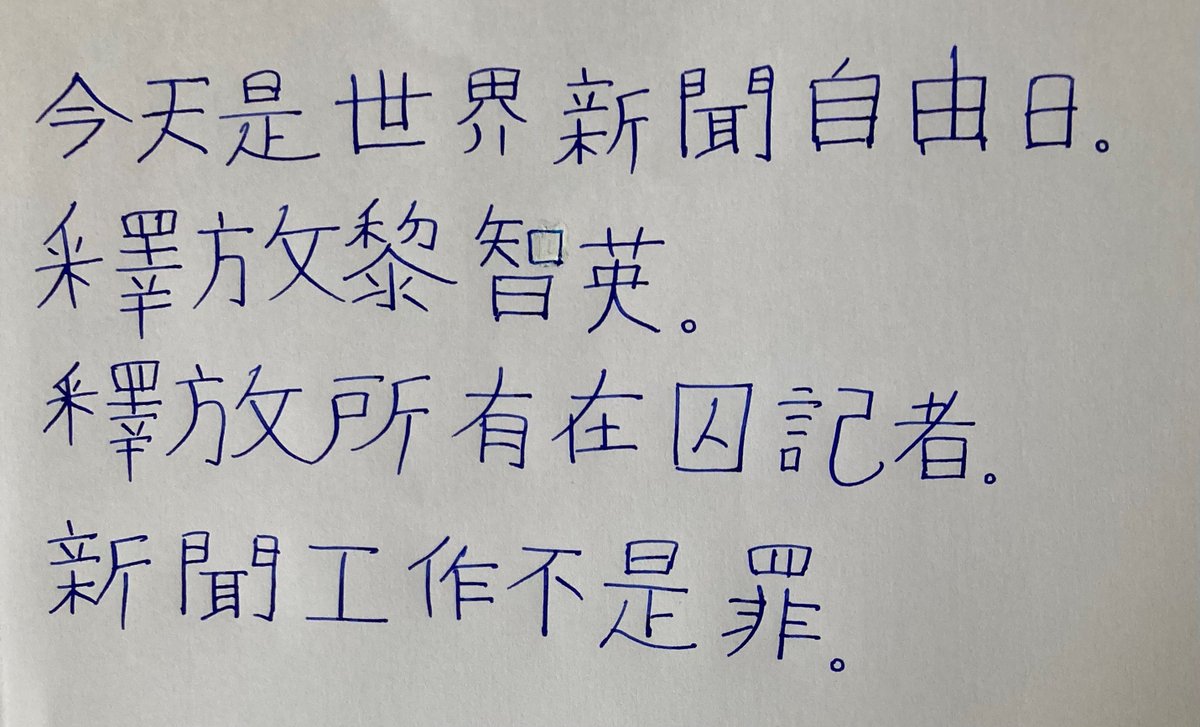 今天是世界新聞自由日。
釋放黎智英。
釋放所有在囚記者。
新聞工作不是罪。